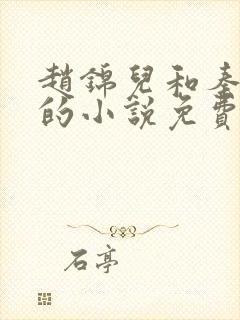 趙錦兒和秦
的小說免費
石亭